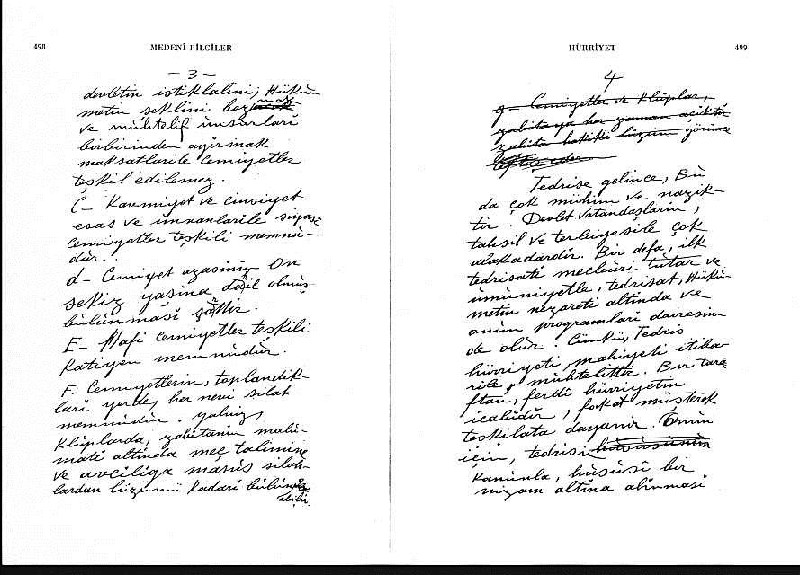 498
MEDENİ BİLGİLER
— 3 —
devletin istiklalini; Hükü-
metin şeklini
ve muhtelif unsurları
birbirinden ayırmak
maksatlarile cemiyetler
teşkil edilemez.
Ç – Kavmiyet ve cinsiyet
esas ve unvanlarile siyasi
cemiyetler teşkili memnu-
dur.
d – Cemiyet azasının on
sekiz yaşına dahil olmuş
bulunması şarttır.
E – Hafi cemiyetler teşkili
katiyen memnudur.
F. Cemiyetlerin, toplandık-
ları yerde, her nevi silat
memnudur. yalnız,
klüplarda, zabıtanın malû-
matı altında meç talimine
ve avcılığa mahsus silah-
lardan lüzumu kadarı bulunabi-
lir.
HÜRRİYET
499
4
g – Cemiyetler ve Klüplar,
zabıtaya her zaman açıktır
zabıta hakiki lüzum görünce
teftiş eder
Tedrise gelince, Bu
da çok mühim ve nazik-
tir. Devlet vatandaşların,
tahsil ve terbiyesile çok
alâkadardır. Bir defa, ilk
tedrisatı mecburi tutar ve
umumiyetle, tedrisat, Hükü-
metin nezareti altında ve
onun programları dairesin-
de olur. Çünki, Tedris
hürriyeti mahiyeti itiba-
rile, muhtelittir. Bir tara
ftan, ferdi hürriyetin
icabıdır, fakat müşterek
teşkilata dayanır. Bunun
için, tedrisi
kanunla, hususi bir
nizam altına alınması